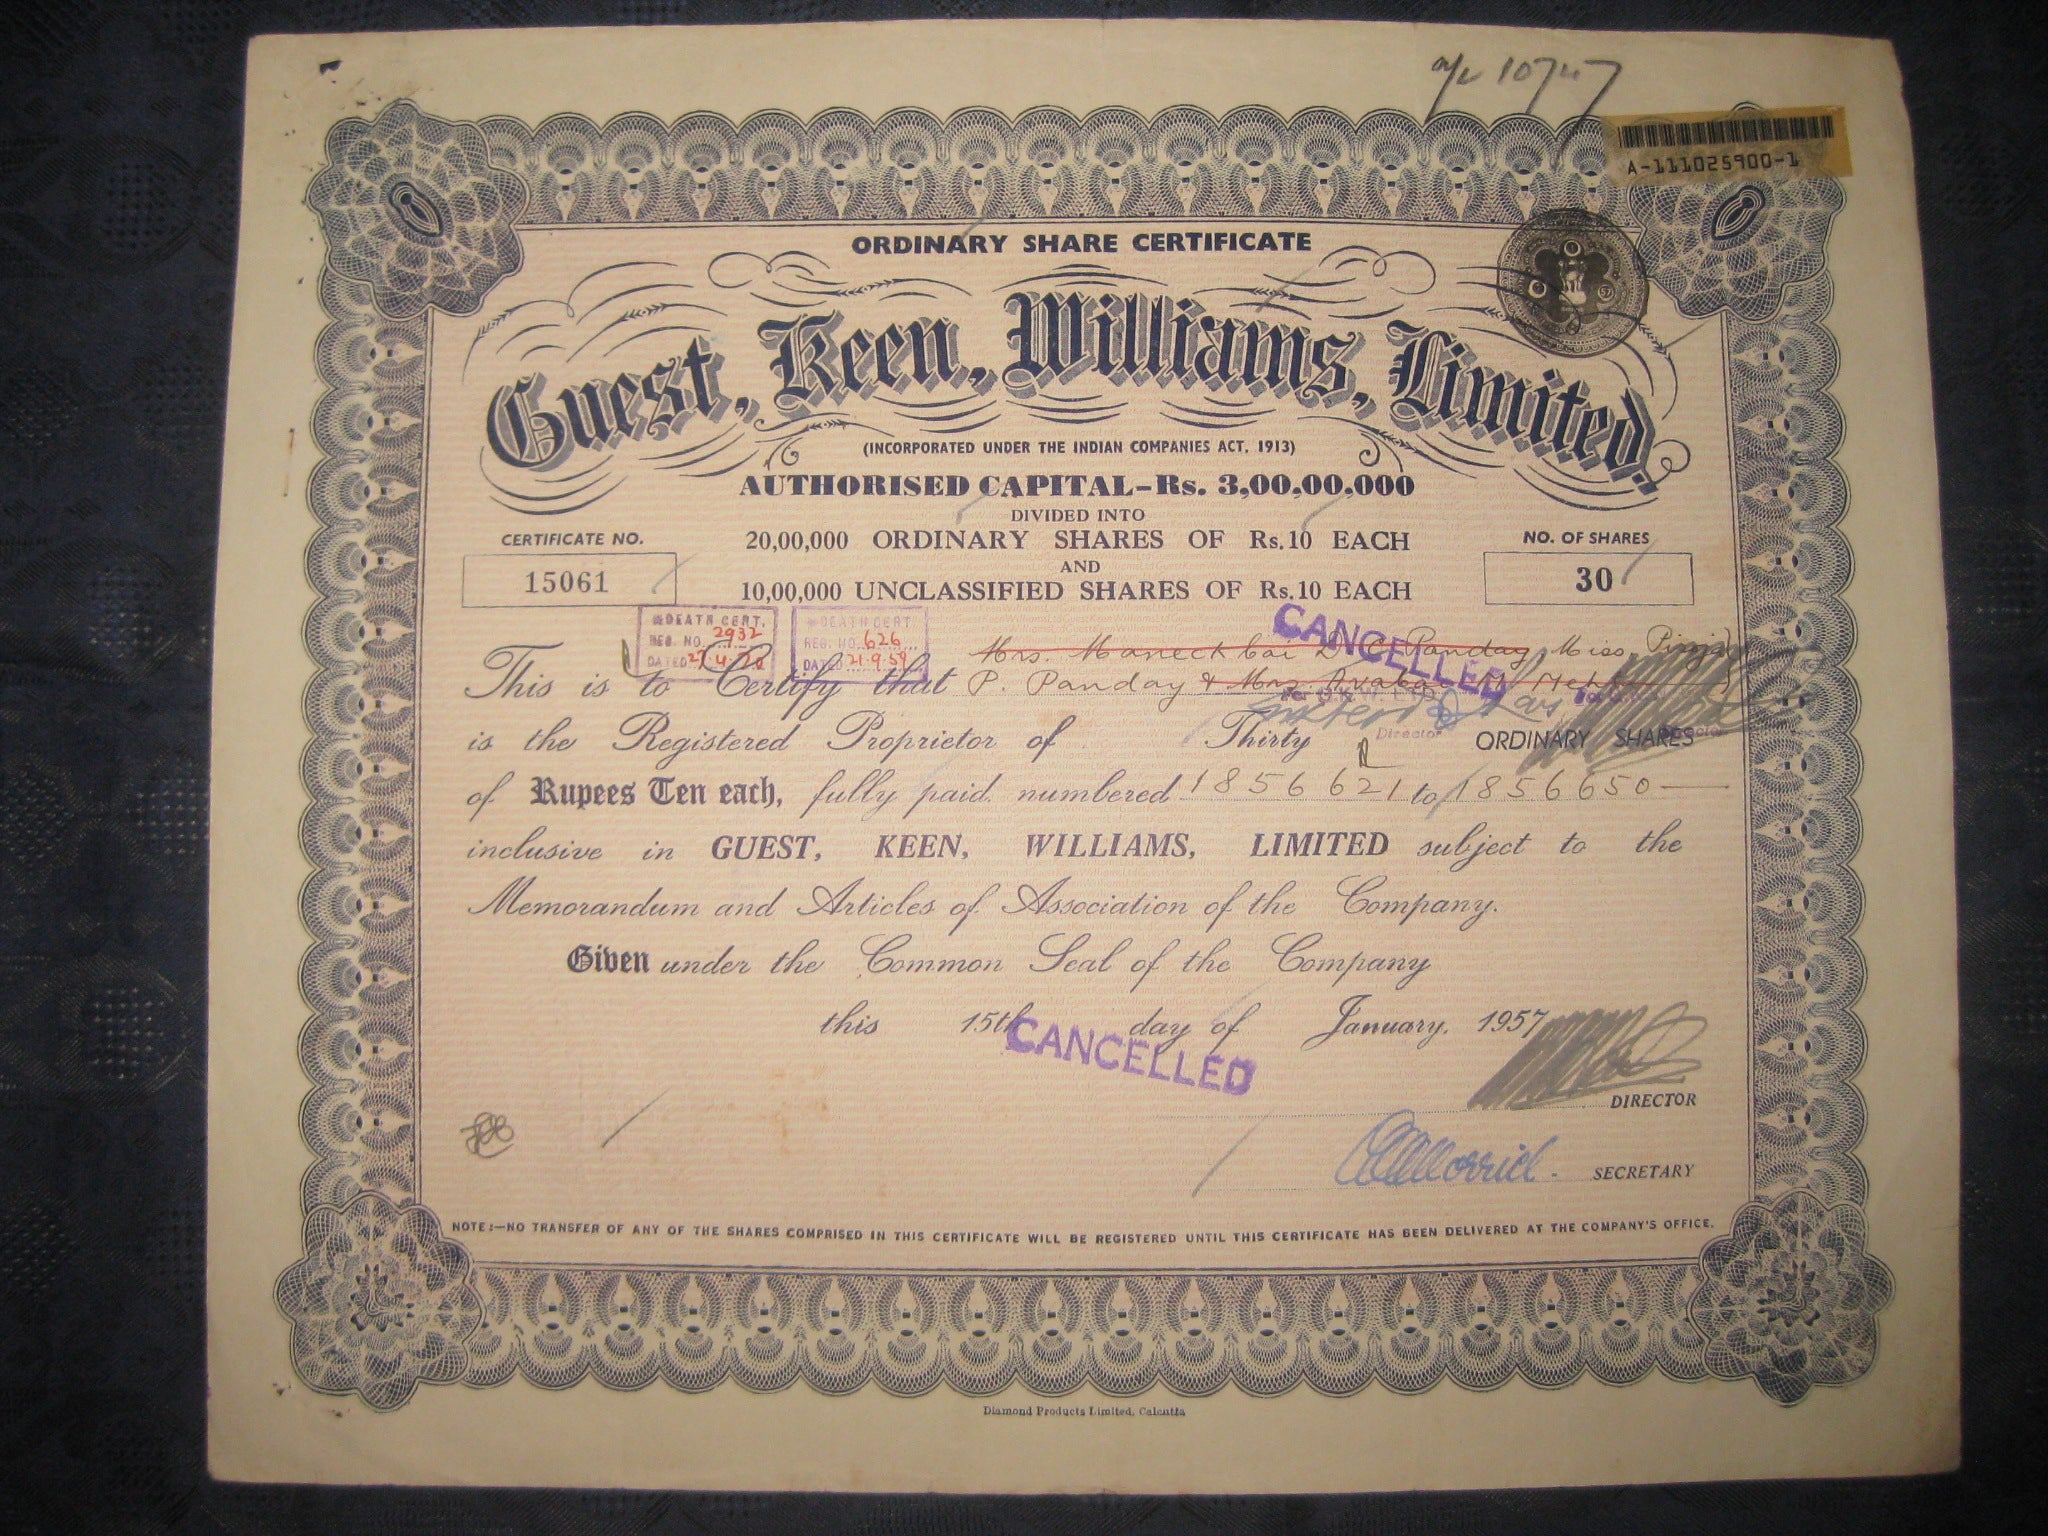 10747
A-111025900-1
ORDINARY SHARE CERTIFICATE
Guest, Keen, Williams, Limited.
(INCORPORATED UNDER THE INDIAN COMPANIES ACT, 1913)
AUTHORISED CAPITAL-Rs. 3,00,00,000
DIVIDED INTO
CERTIFICATE NO. 20,00,000 ORDINARY SHARES OF Rs. 10 EACH NO. OF SHARES
AND
15061 10,00,000 UNCLASSIFIED SHARES OF Rs. 10 EACH 30
DEATH CERT. DEATH CERT.
REG. NO. 2932 REG. NO. 626
DATED DATED 21.9.59
CANCELLED
Mrs. Maneckbai D. C. Panday Miss
This is to Certify that P. Panday & Mrs.
Director
is the Registered Proprietor of Thirty ORDINARY SHARES
of Rupees Ten each, fully paid numbered 1856621 to 1856650
inclusive in GUEST, KEEN, WILLIAMS, LIMITED subject to the
Memorandum and Articles of Association of the Company.
Given under the Common Seal of the Company
this 15th day of January, 1957
CANCELLED
DIRECTOR
SECRETARY
NOTE:-NO TRANSFER OF ANY OF THE SHARES COMPRISED IN THIS CERTIFICATE WILL BE REGISTERED UNTIL THIS CERTIFICATE HAS BEEN DELIVERED AT THE COMPANY'S OFFICE.
Diamond Products Limited, Calcutta